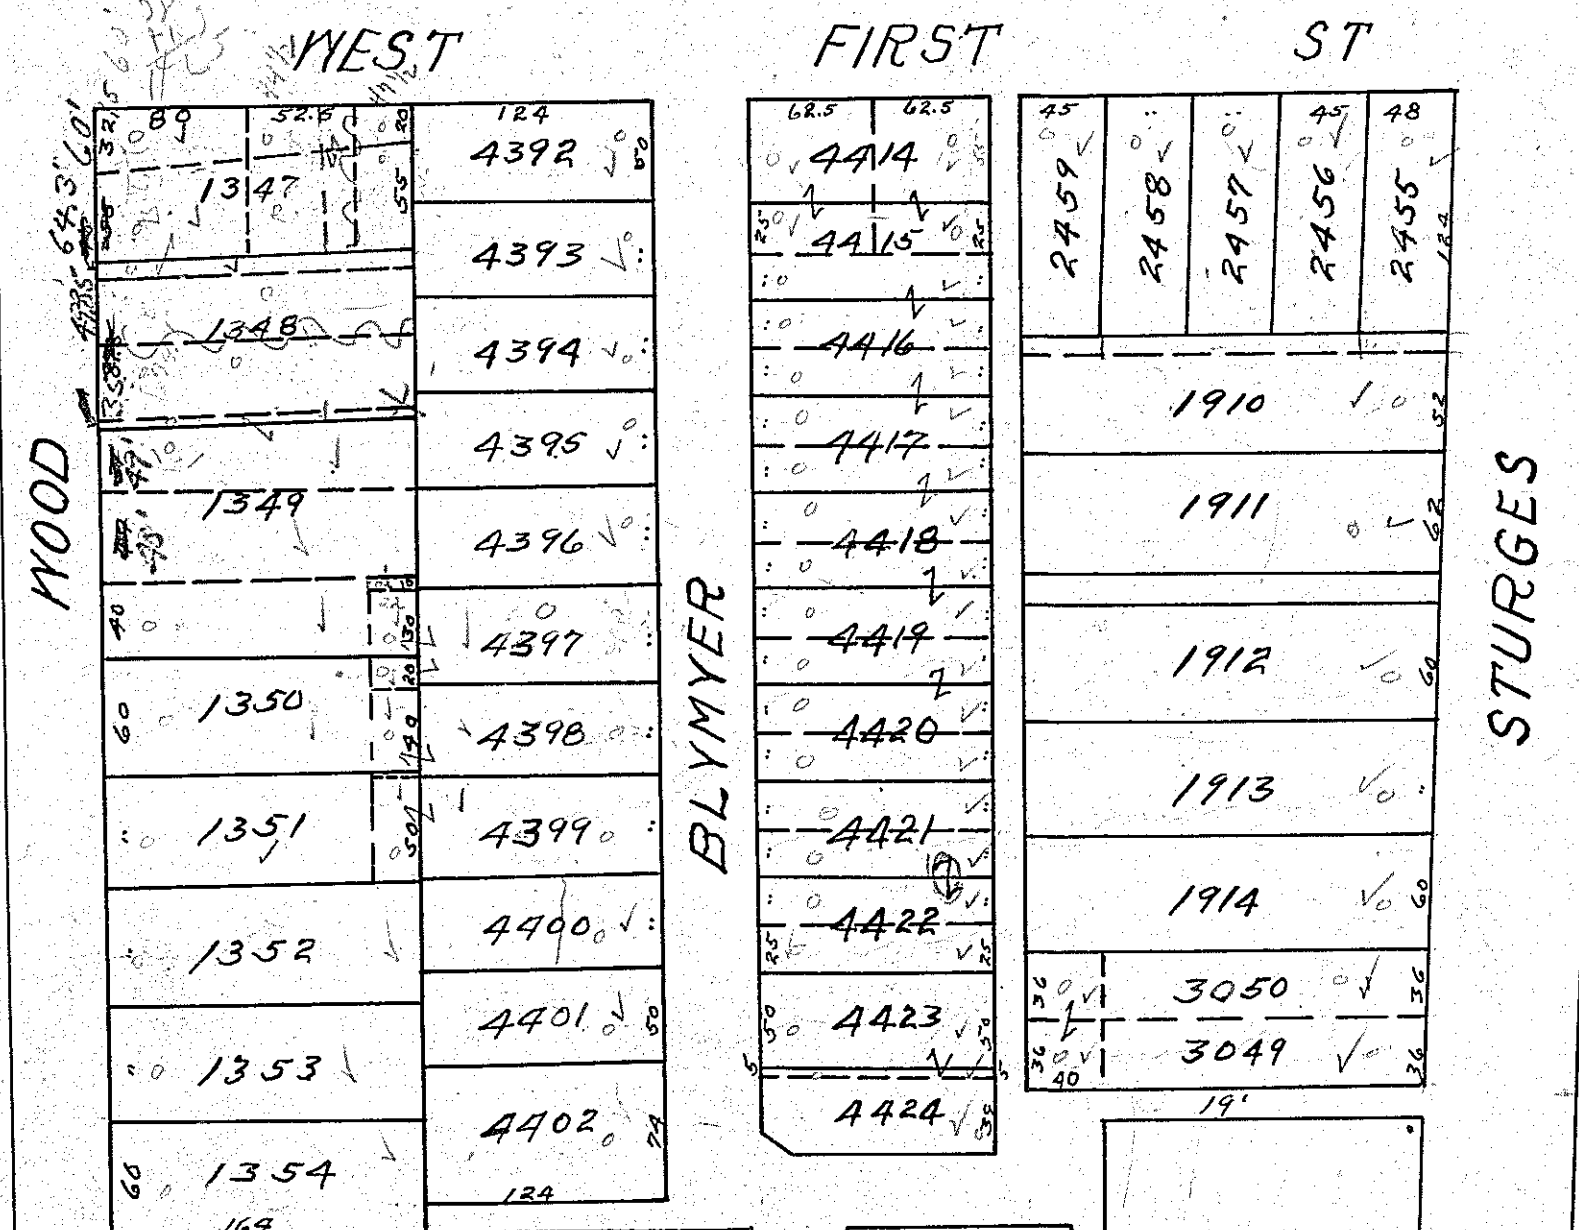 WEST FIRST ST
WOOD
BLYMYER
STURGES
80 52.5 20
32.5
1347
55
64.3' 60'
1348
1349
47'
40
30
1350
60
20
40
1351
50
1352
1353
1354
60
164
124
4392
50
4393
4394
4395
4396
4397
4398
4399
4400
4401
50
4402
74
124
62.5 62.5
4414
25 4415 25
4416
4417
4418
4419
4420
4421
4422
25 25
50 4423 50
5 5
4424
39
45 45 48
2459
2458
2457
2456
2455
124
1910
52
1911
62
1912
60
1913
1914
60
36 3050 36
36 3049 36
40
19'